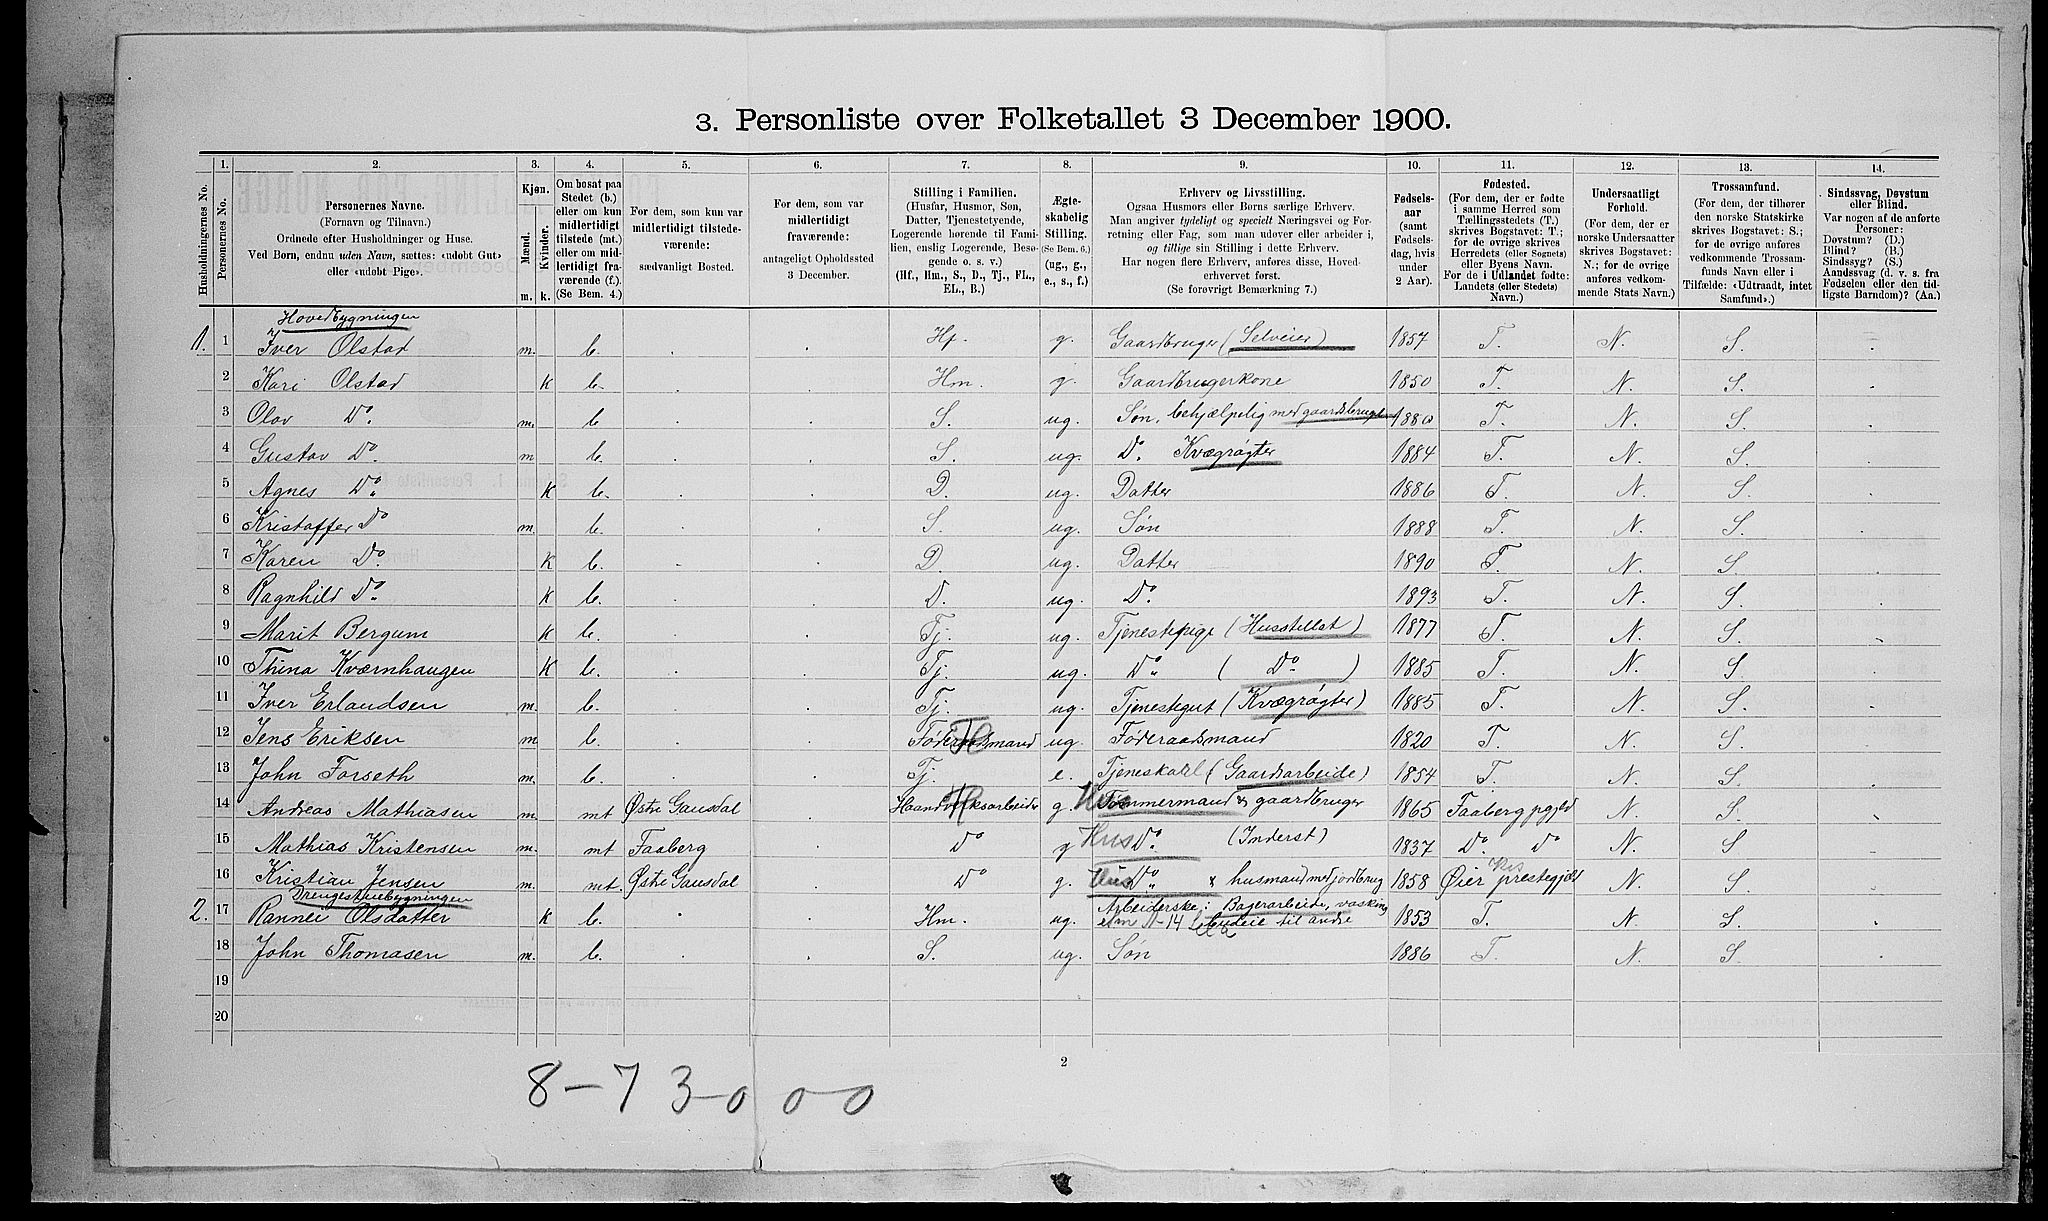 3. Personliste over Folketallet 3 December 1900.
Husholdningernes No. | 1. Personernes No. | 2. Personernes Navne. (Fornavn og Tilnavn.) Ordnede efter Husholdninger og Huse. Ved Børn, endnu uden Navn, sættes: «udøbt Gut» eller «udøbt Pige». | 3. Kjøn. Mænd. m. Kvinder. k. | 4. Om bosat paa Stedet (b.) eller om kun midlertidigt tilstede (mt.) eller om midlertidigt fraværende (f.). (Se Bem. 4.) | 5. For dem, som kun var midlertidigt tilstedeværende: sædvanligt Bosted. | 6. For dem, som var midlertidigt fraværende: antageligt Opholdssted 3 December. | 7. Stilling i Familien. (Husfar, Husmor, Søn, Datter, Tjenestetyende, Logerende hørende til Familien, enslig Logerende, Besøgende o. s. v.) (Hf., Hm., S., D., Tj., FL., EL., B.) | 8. Ægteskabelig Stilling. (Se Bem. 6.) (ug., g., e., s., f.) | 9. Erhverv og Livsstilling. Ogsaa Husmors eller Børns særlige Erhverv. Man angiver tydeligt og specielt Næringsvei og Forretning eller Fag, som man udøver eller arbeider i, og tillige sin Stilling i dette Erhverv. Har nogen flere Erhverv, anføres disse, Hovederhvervet først. (Se forøvrigt Bemærkning 7.) | 10. Fødselsaar (samt Fødselsdag, hvis under 2 Aar). | 11. Fødested. (For dem, der er fødte i samme Herred som Tællingsstedets (T.) skrives Bogstavet: T.; for de øvrige skrives Herredets (eller Sognets) eller Byens Navn. For de i Udlandet fødte: Landets (eller Stedets) Navn.) | 12. Undersaatligt Forhold. (For dem, der er norske Undersaatter skrives Bogstavet: N.; for de øvrige anføres vedkommende Stats Navn.) | 13. Trossamfund. (For dem, der tilhører den norske Statskirke skrives Bogstavet: S.; for de øvrige anføres vedkommende Trossamfunds Navn eller i Tilfælde: «Udtraadt, intet Samfund».) | 14. Sindssvag, Døvstum eller Blind. Var nogen af de anførte Personer: Døvstum? (D.) Blind? (B.) Sindssyg? (S.) Aandssvag (d. v. s. fra Fødselen eller den tidligste Barndom)? (Aa.)
Hovedbygningen
1. 1 Iver Olstad m. b. Hf. g. Gaardbruger (Selveier) 1857 T. N. S.
2 Kari Olstad k b. Hm. g. Gaardbrugerkone 1850 T. N. S.
3 Olav Do. m. b S. ug. Søn, behjælpelig med gaardsbruget 1880 T. N. S.
4 Gustav Do. m b. S. ug. Do. Kvægrøgter 1884 T. N. S.
5 Agnes Do. k b. D. ug. Datter 1886 T. N. S.
6 Kristoffer Do m. b. S. ug. Søn 1888 T. N. S.
7 Karen Do. k b. D. ug. Datter 1890 T. N. S.
8 Ragnhild Do. k b. D. ug. Do. 1893 T. N. S.
9 Marit Bergum k b. Tj. ug. Tjenestepige (Husstellet) 1877 T. N. S.
10 Thina Kværnhaugen k b. Tj. ug. Do. (Do.) 1885 T. N. S.
11 Iver Erlandsen m. b. Tj. ug. Tjenestegut (Kvægrøgter) 1885 T. N. S.
12 Jens Eriksen m b. Føderaadsmand ug. Føderaadsmand 1820 T. N. S.
13 John Forseth m. b. Tj. e. Tjeneskarl (Gaardsarbeide) 1854 T. N. S.
14 Andreas Mathiasen m mt Østre Gausdal Haandverksarbeider g. Tømmermand & gaardbruger 1865 Faaberg pgjeld N. S.
15 Mathias Kristensen m. mt Faaberg Do g Hus Do. (Inderst) 1837 Do. Do N. S.
16 Kristian Jensen m. mt. Østre Gausdal Do g. Hus Do. & husmand med jordbrug 1858 Øier præstegjeld N. S.
Drengestuebygningen
2. 17 Rannei Olsdatter k b. Hm. ug. Arbeiderske: Bagerarbeide, vasking 1853 T. N. S.
til andre
18 John Thomasen m. b. S. ug. Søn 1886 T. N. S.
19
20
2
8-73-0 0-0